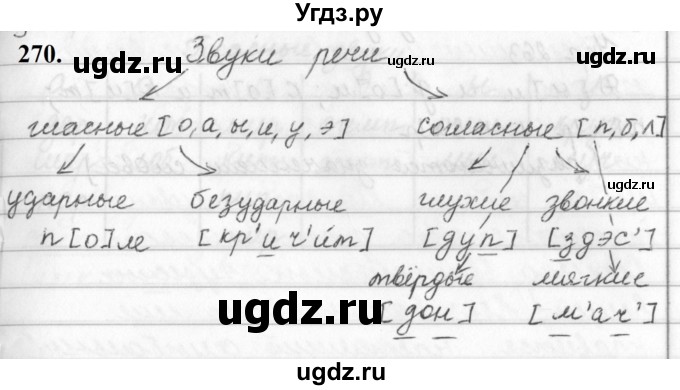 Угдз.ру
270. Звуки речи
гласные [о, а, ы, и, у, э] согласные [п, б, л]
ударные безударные глухие звонкие
п[о]ле [кр'ич'и́т] [дуп] [здэс']
твёрдые мягкие
[дон] [м'ач']
ugdz.ru
ugdz.ru
ugdz.ru
ugdz.ru
ugdz.ru
ugdz.ru
ugdz.ru
Угдз.ру